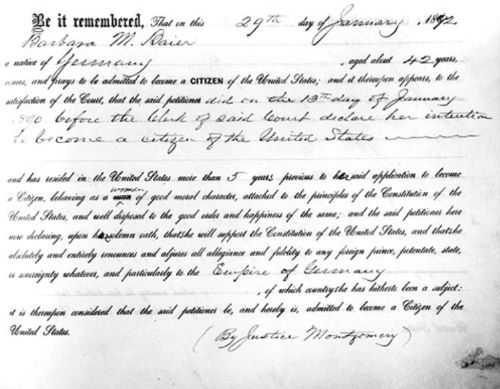 Be it remembered, That on this 29th day of January 1892
Barbara M. Baier
a native of Germany , aged about 42 years,
comes, and prays to be admitted to become a CITIZEN of the United States; and it thereupon appears, to the
satisfaction of the Court, that the said petitioner did on the 13th day of January
1890 before the Clerk of said Court declare her intention
to become a citizen of the United States
and has resided in the United States more than 5 years previous to her said application to become
a Citizen, behaving as a woman of good moral character, attached to the principles of the Constitution of the
United States, and well disposed to the good order and happiness of the same; and the said petitioner here
now declaring, upon her solemn oath, that she will support the Constitution of the United States, and that she
absolutely and entirely renounces and abjures all allegiance and fidelity to any foreign prince, potentate, state,
or sovereignty whatever, and particularly to the Empire of Germany
, of which country she has hitherto been a subject:
it is thereupon considered that the said petitioner be, and hereby is, admitted to become a Citizen of the
United States.
(By Justice Montgomery)